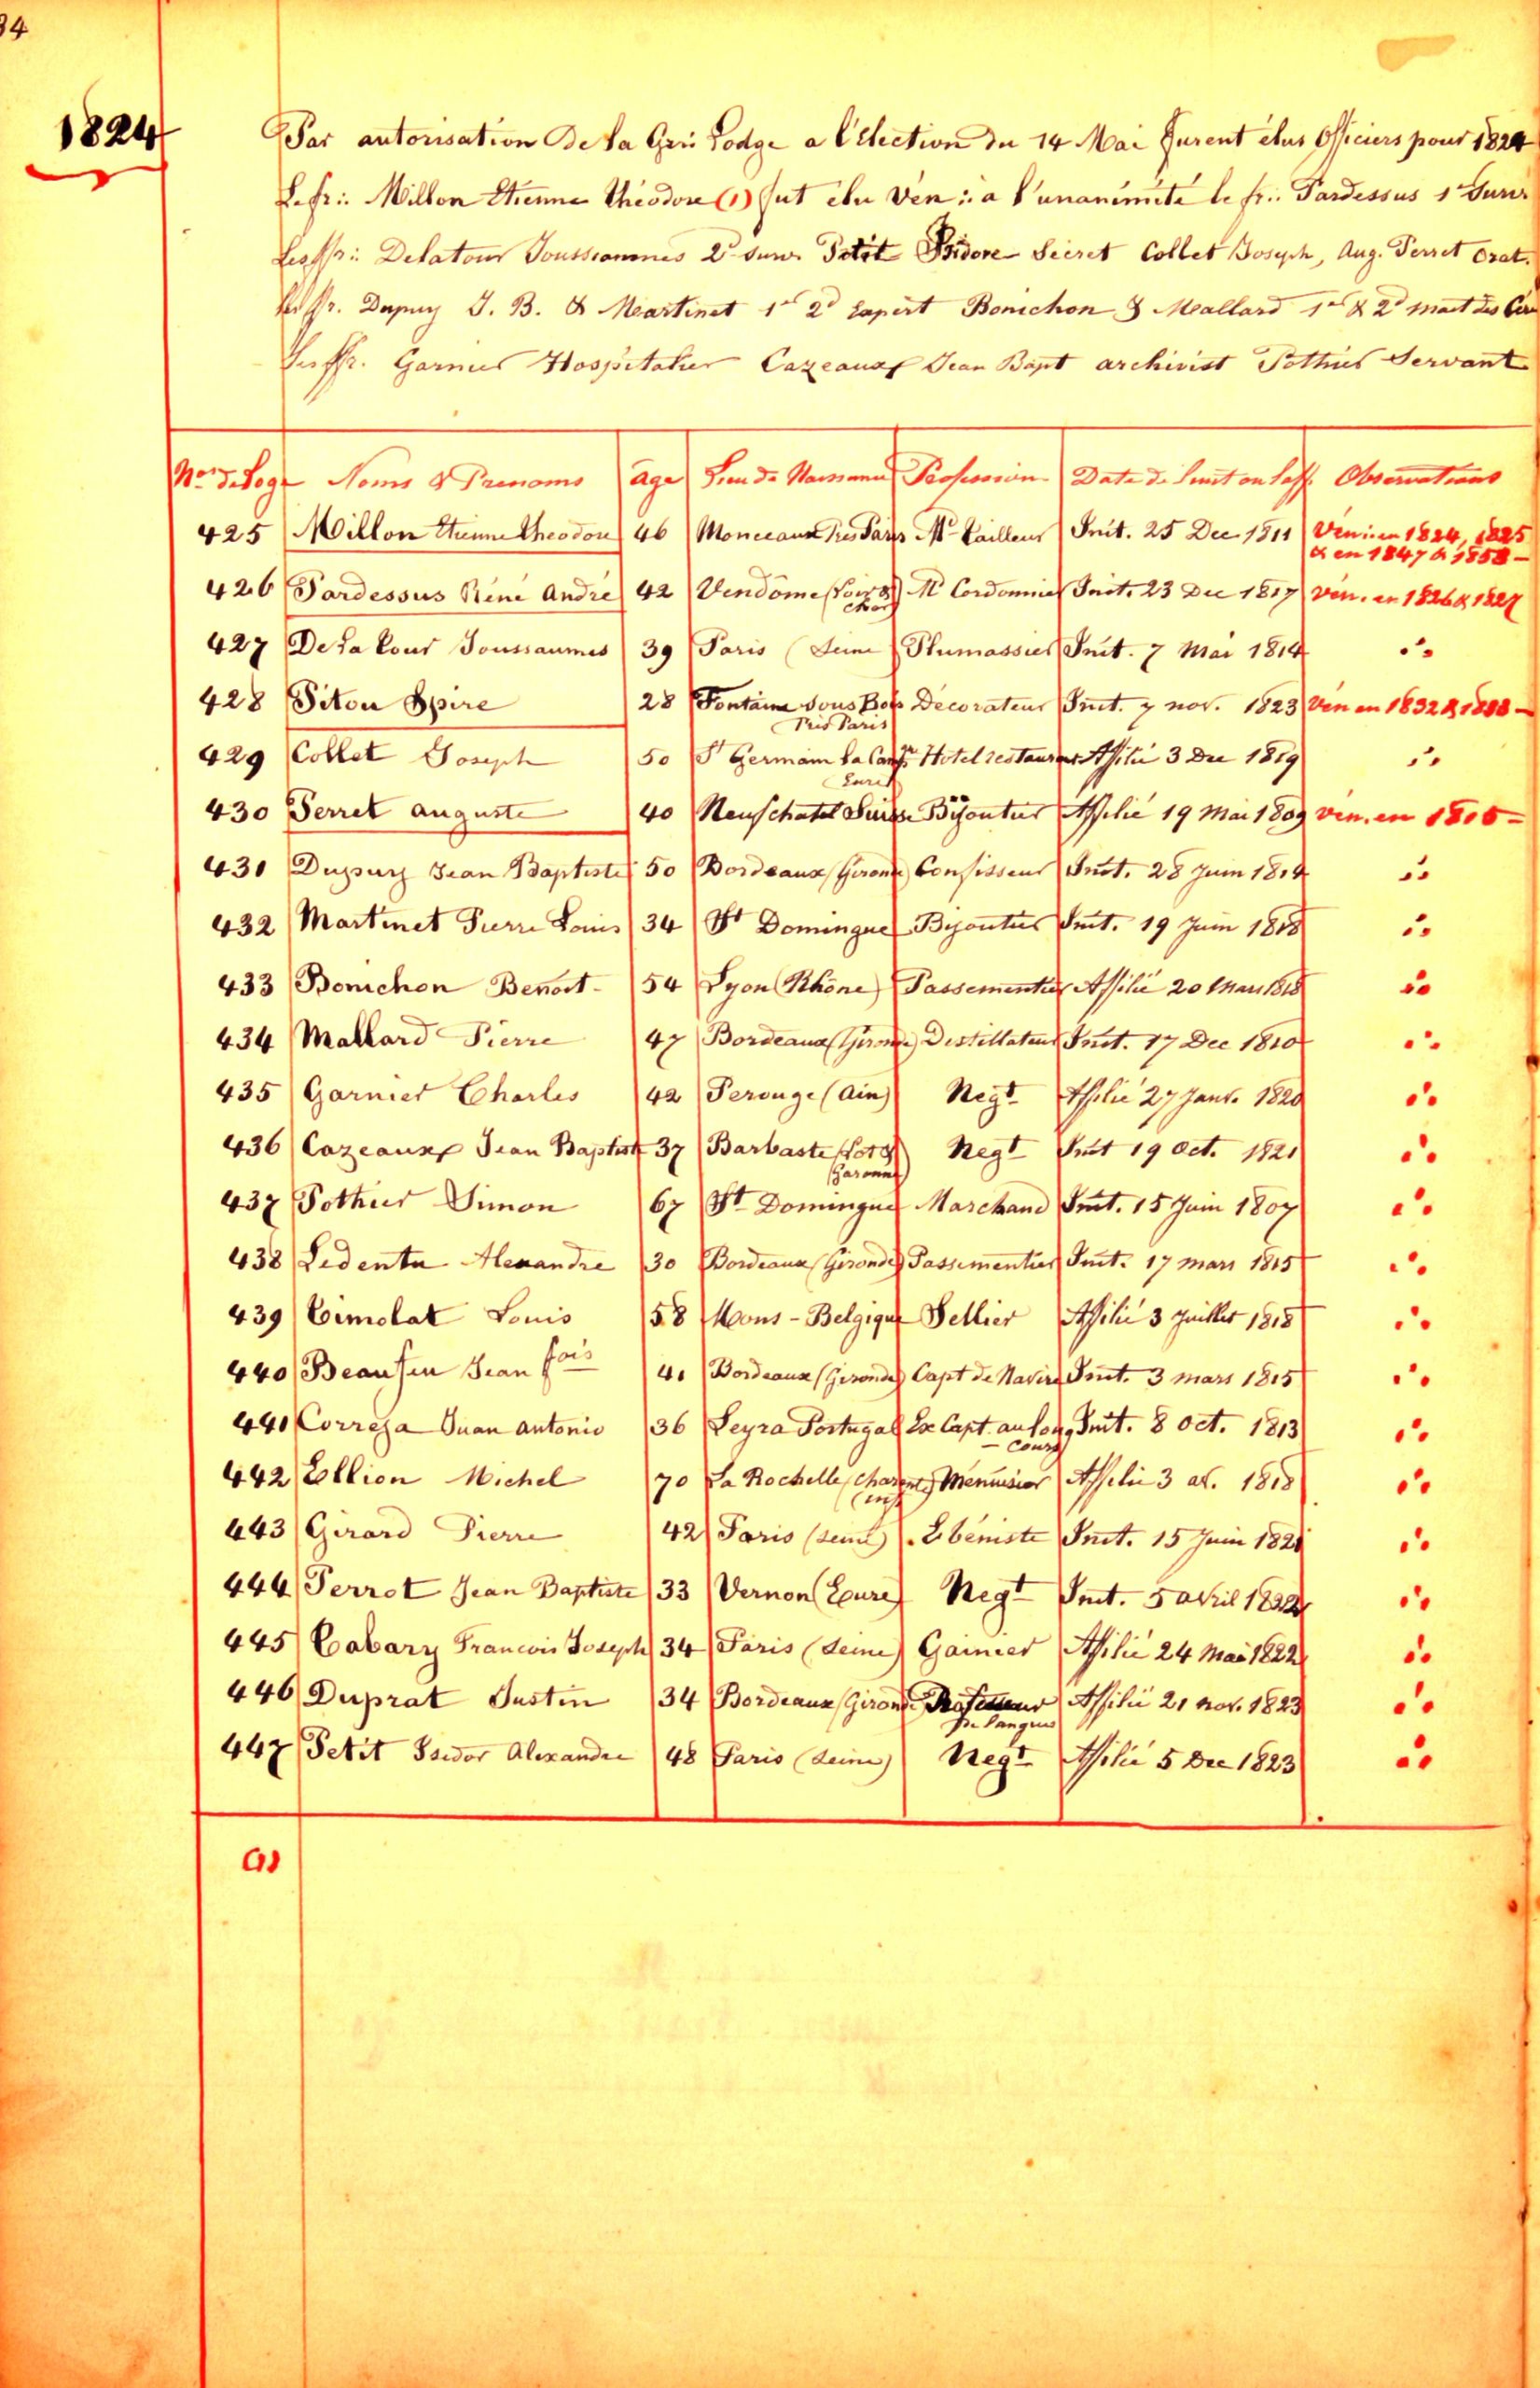 34
1824
Par autorisation De La Gr∴ Lodge a l'Election du 14 Mai furent élus Officiers pour 1824
Le fr∴ Millon Etienne théodore (1) fut élu Ven∴ a l'unanimité le fr∴ Pardessus 1er Surv.
Les ffr∴ Delatour Toussaumes 2d Surv. Petit Isidore Secret Collet Joseph, Aug. Perret Orat.
Les ffr. Dupuy J. B. & Martinet 1er 2d Expert Bonichon & Mallard 1er & 2d Mait des Cer
Les ffr. Garnier Hospitalier Cazeaux Jean Bapt archivist Pothier Servant
Nos de Loge Noms & Prenoms age Lieu de Naissance Profession Date de l'init ou l'aff. Observations
425 Millon Etienne theodore 46 Monceaux Près Paris Md Tailleur Init. 25 Dec 1811 Ven∴ en 1824, 1825 & en 1847 à 1858 -
426 Pardessus Réné André 42 Vendôme (Loir & Cher) Md Cordonnier Init. 23 Dec 1817 Ven. en 1826 & 1827
427 De La tour Toussaumes 39 Paris (Seine Plumassier Init. 7 Mai 1814 ∴
428 Piton Spire 28 Fontaine Sous Bois Près Paris Décorateur Init. 7 nov. 1823 Ven en 1832 & 1833 -
429 Collet Joseph 50 St Germain La Camp. Eure Hotel restaurant Affilié 3 Dec 1819 ∴
430 Perret auguste 40 Neufchatel Suisse Bijoutier Affilié 19 Mai 1809 ven. en 1815 -
431 Dupuy Jean Baptiste 50 Bordeaux (Gironde) Confisseur Init. 28 Juin 1814 ∴
432 Martinet Pierre Louis 34 St Domingue Bijoutier Init. 19 Juin 1818 ∴
433 Bonichon Benoit - 54 Lyon (Rhône) Passementier Affilié 20 Mars 1818 ∴
434 Mallard Pierre 47 Bordeaux (Gironde) Distillateur Init. 17 Dec 1810 ∴
435 Garnier Charles 42 Perouge (Ain) Negt Affilié 27 Janv. 1820 ∴
436 Cazeaux Jean Baptist 37 Barbaste (Lot & Garonne) Negt Init 19 Oct. 1821 ∴
437 Pothier Simon 67 St Domingue Marchand Init. 15 Juin 1807 ∴
438 Ledentu Alexandre 30 Bordeaux (Gironde) Passementier Init. 17 mars 1815 ∴
439 Cimolat Louis 58 Mons - Belgique Sellier Affilié 3 Juillet 1818 ∴
440 Beaufeu Jean fois 41 Bordeaux (Gironde) Capt de Navire Init. 3 mars 1815 ∴
441 Correja Juan antonio 36 Leyra Portugal Ex Capt. au long Cours Init. 8 Oct. 1813 ∴
442 Ellion Michel 70 La Rochelle (Charente inf) Menuisier Affilié 3 av. 1818 ∴
443 Girard Pierre 42 Paris (Seine) Ebéniste Init. 15 Juin 1821 ∴
444 Perrot Jean Baptiste 33 Vernon (Eure) Negt Init. 5 avril 1822 ∴
445 Cabary Francois Joseph 34 Paris (Seine) Gainier Affilié 24 Mai 1822 ∴
446 Duprat Justin 34 Bordeaux (Gironde Professeur De langues Affilié 21 nov. 1823 ∴
447 Petit Isidor Alexandre 48 Paris (Seine) Negt Affilié 5 Dec 1823 ∴
(1)